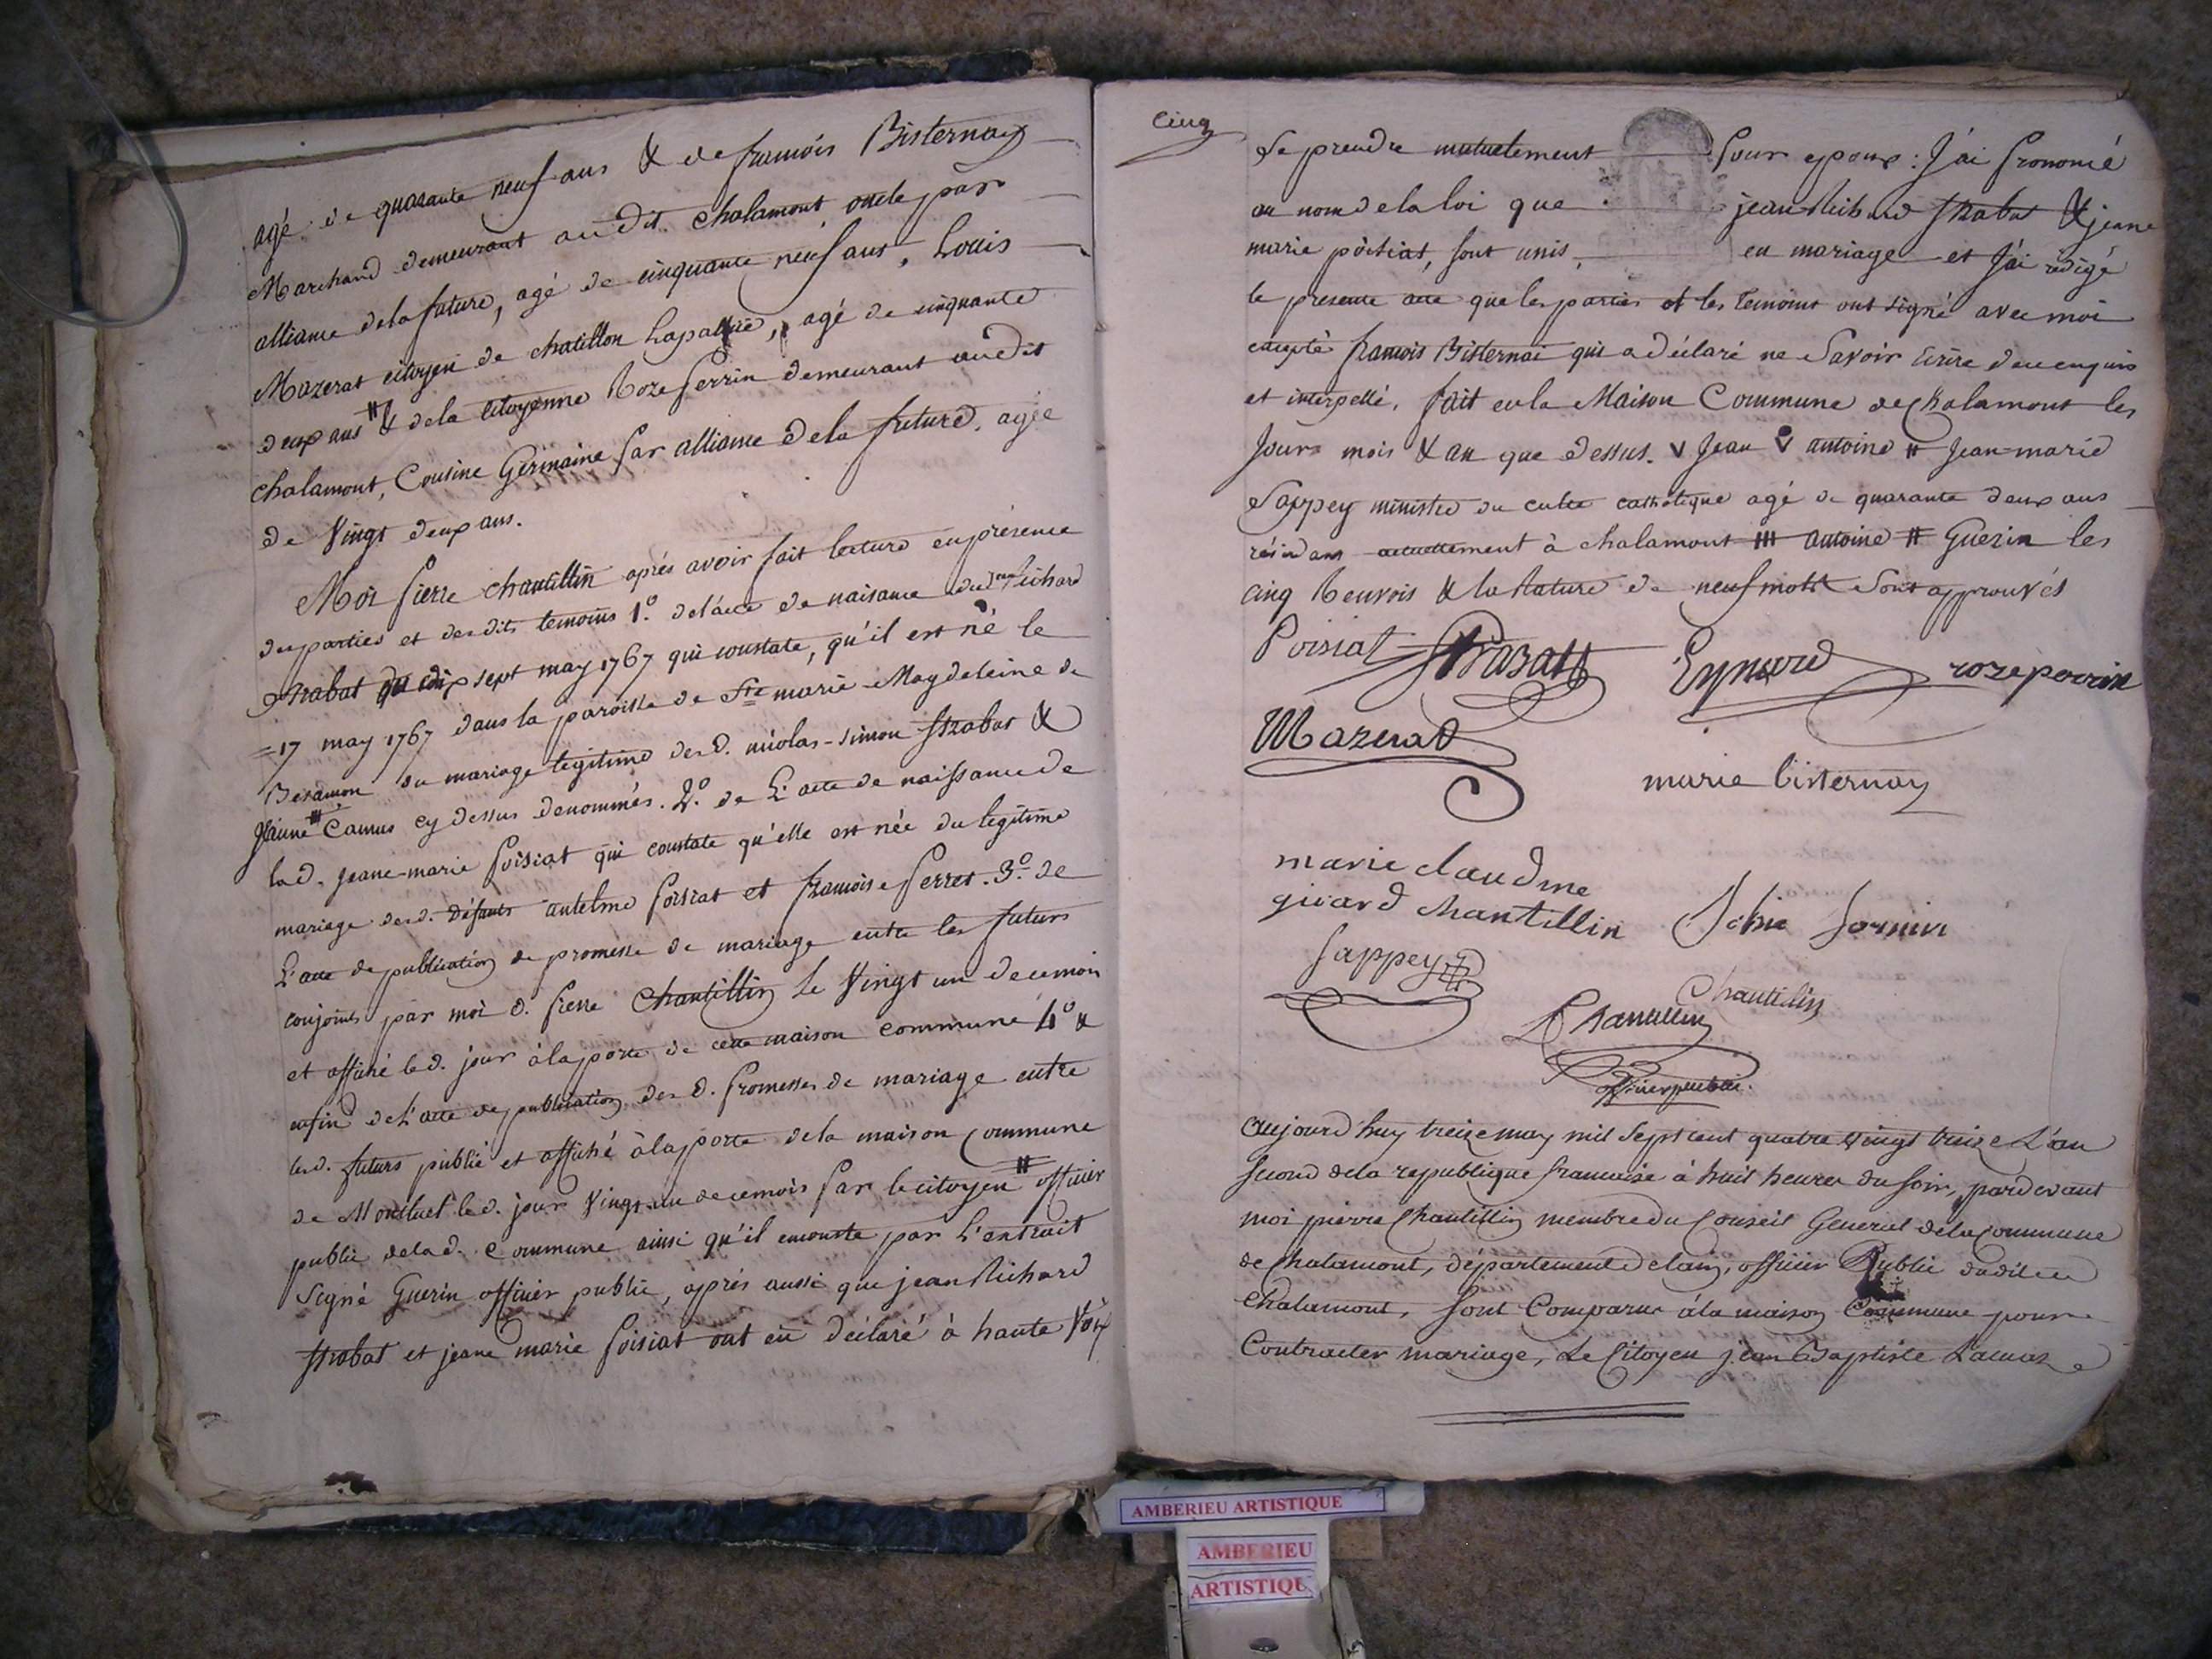 agé de quarante neuf ans & de francois Bisternay
Marchand demeurant audit chalamont oncle par
alliance de la future, agé de cinquante neuf ans, Louis
Mazerat citoyen de chatillon Lapallue, agé de cinquante
deux ans # & de la citoyenne Roze Perrin demeurant audit
chalamont, Cousine Germaine par alliance de la future, agée
de Vingt deux ans.
Moi Pierre Chantillin aprés avoir fait lecture en présence
des parties et desdits temoins 1.° de l'acte de naisance dud Jean Richard
Strabat du dix sept may 1767 qui constate, qu'il est né le
17 may 1767 dans la paroisse de Ste marie-Magdeleine de
Besancon du mariage legitime des d. nicolas-simon Strabat &
Jeanne # Camus cy dessus denommés. 2.° de L'acte de naissance de
la d. jeane-marie Poisiat qui constate qu'elle est née du legitime
mariage des d. défunts antelme Poisiat et francoise Perret. 3.° de
L'acte de publication de promesse de mariage entre les futurs
conjoints par moi d. Pierre Chantillin le Vingt un de ce mois
et affiché le d. jour à la porte de cette maison commune 4° &
enfin de L'acte de publication des d. Promesses de mariage entre
les d. futurs publié et affiché à la porte de la maison Commune
de Montluel le d. jour Vingt un de ce mois par le citoyen # officier
public de la d. Commune ainsi qu'il enconste par L'extrait
Signé Guerin officier public, après aussi que jean Richard
Strabat et jeane marie Poisiat ont eu déclaré à haute Voix
Cinq
Se prendre mutuelement Pour epoux : J'ai Prononcé
au nom de la loi que jean Richard Strabat & jeane
marie poisiat, sont unis, en mariage et J'ai rédigé
le presente acte que les parties et les temoins ont signé avec moi
excepté francois Bisternai qui a déclaré ne Savoir Ecrire de ce enquis
et interpellé. fait en la Maison Commune de Chalamont les
Jours mois & an que dessus. v Jean v antoine # Jean-marie
Sappey ministre du culte catholique agé de quarante deux ans
résidant actuellement à chalamont III antoine # Guerin les
cinq Renvois & la rature de neuf mots Sont approuvés
Poisiat Strabatt Eynard roze perrin
Mazerat
marie bisternay
marie claudine
girard chantillin
Sappey
Chantillin
Chantillin
officier public.
Aujourdhuy treize may mil Sept cent quatre vingt treize L'an
Second de la republique francaise à huit heures du soir, pardevant
moi pierre Chantillin membre du Conseil General de la Commune
de Chalamont, département de lain, officier Public dudit
Chalamont, Sont Comparus à la maison Commune pour
Contracter mariage, Le Citoyen jean Baptiste
AMBERIEU ARTISTIQUE
AMBERIEU
ARTISTIQU